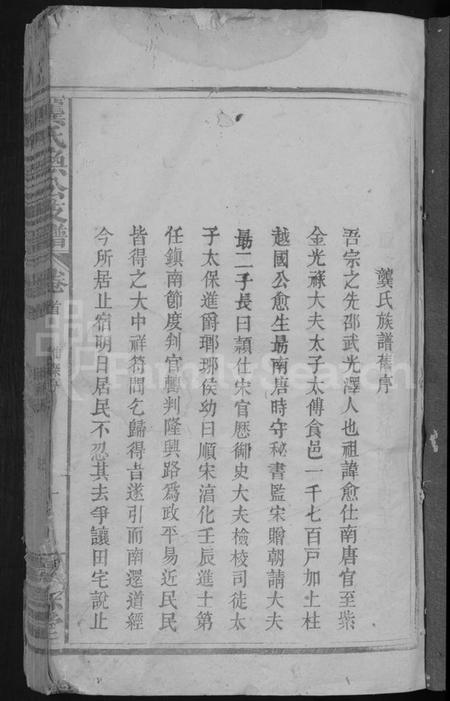 龔氏族譜舊序
吾宗之先邵武光澤人也祖諱愈仕南唐官至紫
金光祿大夫太子太傅食邑一千七百戸加上柱
越國公愈生最南唐時守秘書監宋贈朝請大夫
最二子長曰頴仕宋官歷御史大夫檢校司徒太
子太保進爵瑯琊侯幼曰順宋淳化壬辰進士第
任鎮南節度判官暫判隆興路爲政平易近民民
皆得之大中祥符間乞歸得旨遂引而南還道經
今所居止宿明日居民不忍其去爭讓田宅說止
龔氏 公支譜 卷首
FamilySearch